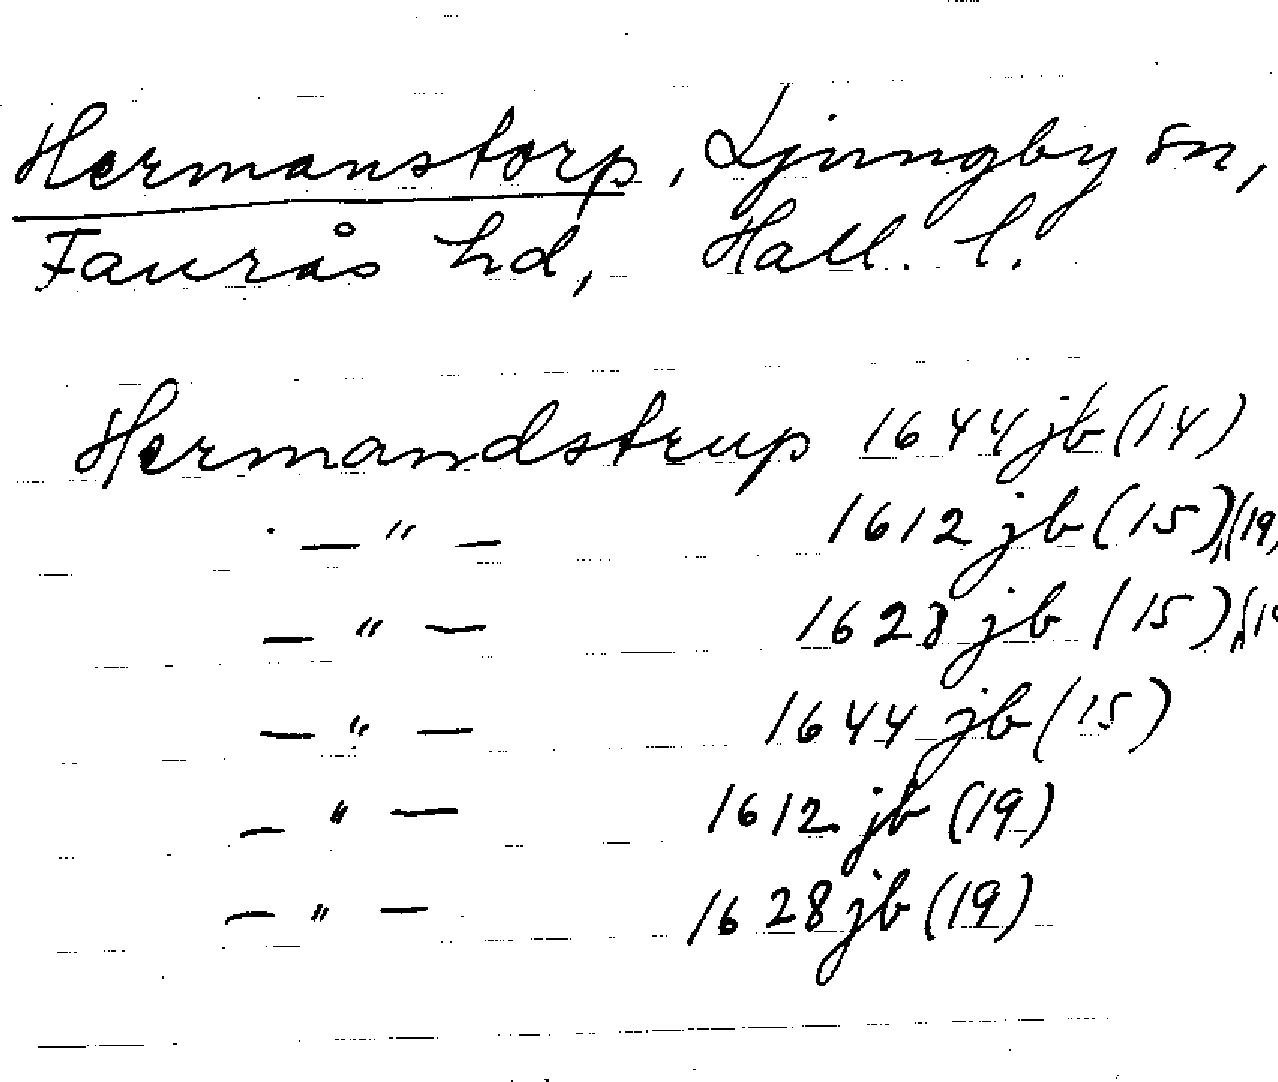 Hermanstorp, Ljungby sn,
Faurås hd, Hall. l.
Hermandstrup 1644 jb (14)
— " — 1612 jb (15), (19)
— " — 1628 jb (15),
— " — 1644 jb (15)
— " — 1612 jb (19)
— " — 1628 jb (19)